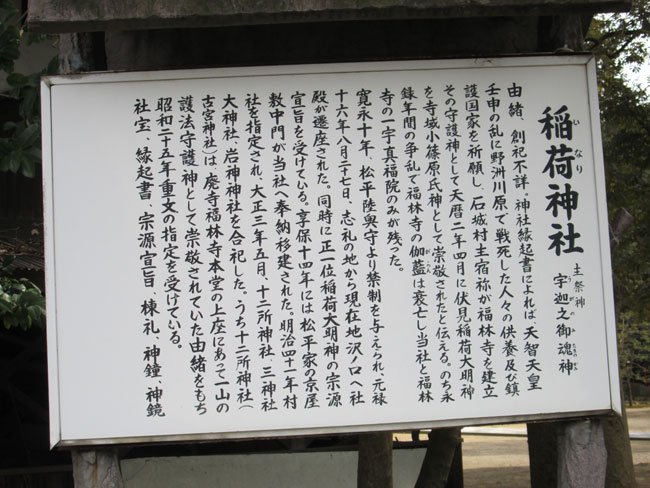 稲荷神社
いなり
主祭神
宇迦之御魂神
うがのみたまのかみ
由緒、創祀不詳、神社縁起書によれば、天智天皇
壬申の乱に野洲川原で戦死した人々の供養及び鎮
護国家を祈願し、石城村主宿祢が福林寺を建立
その守護神として天暦二年四月に伏見稲荷大明神
を寺域小篠原氏神として崇敬されたと伝える。のち永
録年間の争乱で福林寺の伽藍は衰亡し当社と福林
がらん
寺の一宇真福院のみが残った。
寛永十年、松平陸奥守より禁制を与えられ、元禄
十六年八月二十七日、志礼の地から現在地沢ノ口へ社
殿が遷座された。同時に正一位稲荷大明神の宗源
宣旨を受けている。享保十四年には松平家の京屋
敷中門が当社へ奉納移建された。明治四十一年村
社を指定され、大正三年五月、十二所神社、三神社
大神社、岩神神社を合祀した。うち十二所神社(
古宮神社)は、廃寺福林寺本堂の上座にあって一山の
護法守護神として崇敬されていた由緒をもち
昭和二十五年重文の指定を受けている。
社宝、縁起書、宗源宣旨、棟礼、神鐘、神鏡